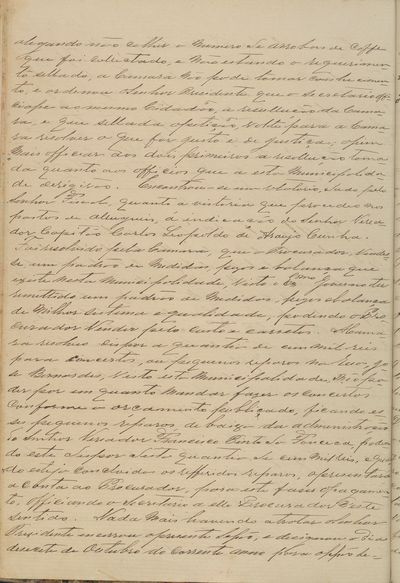 alegando não colher o numero de arrobas de Caffe
que foi collectado, e não estando o requerimen
to sellado, a Camara não pode tomar conhecimen
to, e ordena o Senhor Presidente que o Secretario offi
ciasse ao mesmo Cidadão, a resolução da Cama
ra, e que sellada a petição, volte para a Cama
ra resolver o que for justo e de justiça; e quan
mais officiar aos dois primeiros a resolução toma
da quanto aos officios que a esta Municipalida
de derigirão. Encarrou-se um relatorio, dado pelo
Senhor quanto a vistoria que procedeu nos
pontos de alugueis, á indicação do Senhor Verea
dor Capitão Carlos Leopoldo de Araujo Cunha
Foi resolvido pela Camara, que o Procurador, Vendes
se um padrão de Medidas, pezos e balança que
existe nesta Municipalidade, visto o Exmo Governo ter
remettido um padrão de Medidas, pezos e balança
de Milhor sistema e qualidade, podendo o Pro
curador Vender pelo custo e carreto. A Cama
ra resolveu dispor a quantia de cem mil reis
para concertos, ou pequenos reparos na
de Bernardes, visto esta Municipalidade, não po
der por em quanto mandar fazer os concertos
conforme o orçamento publicado, ficando es
ses pequenos reparos de baixo da administração
do Senhor Vereador Francisco Pinto da Fonceca, poden
do este dispor desta quantia de cem mil reis, e quan
do esteja concluido os refferidos reparos, apresentará
a conta ao Procurador, para este fazer o pagamen
to, officiando o Secretario a elle Procurador neste
sentido. Nada mais havendo a tratar o Senhor
Presidente encerra a presente Sessão, e designou o dia
desecete de Outubro do corrente anno para a appro